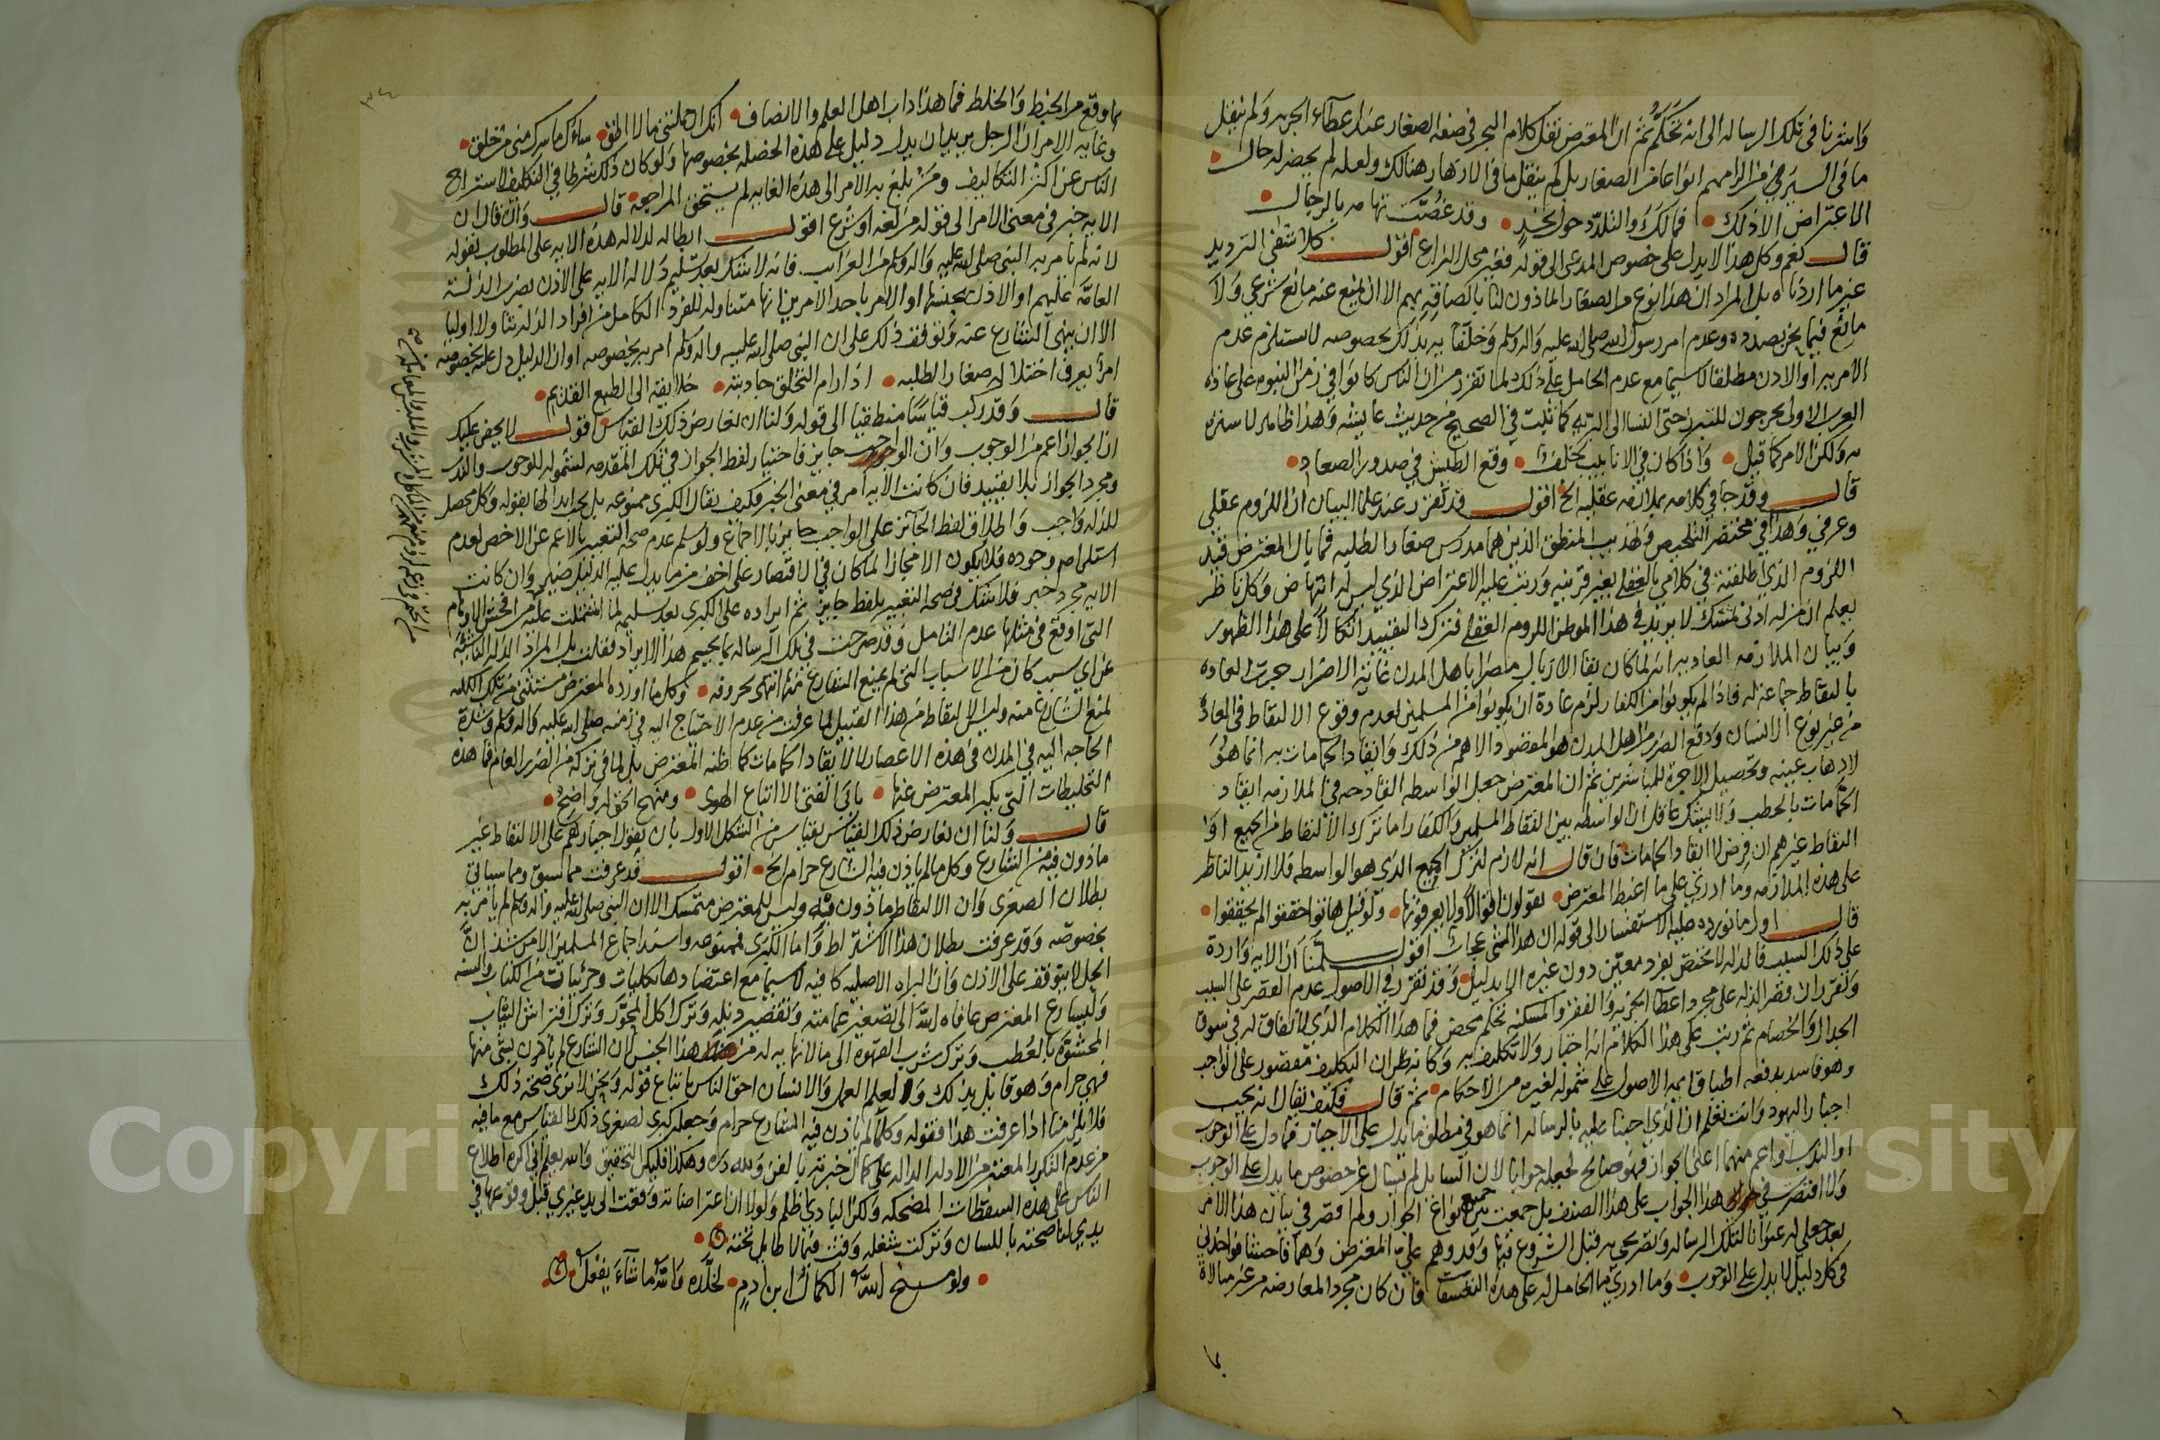 واشرنا في تلك الرسالة الى انه تحكم ثم ان المعترض نقل كلام البحر في صفة الصغار عند اعطاء الجزية ولم ينقل
ما في السير في الزامهم انواعا من الصغار بل لم ينقل ما في الازهار هنالك ولعله لم يحضر له حال
الاعتراض الا ذلك فمالك والتلدد حول نجد وقد غصت تهامه بالرجال
قال نعم وكل هذا لا يدل على خصوص المدعى الى قوله فغير محل النزاع اقول كلا شقي الترديد
غير ما اردناه بل المراد ان هذا نوع من الصغار الماذون لنا بالصاقه بهم الا ان يمنع عنه مانع شرعي ولا
مانع فيما نحن بصدده وعدم امر رسول الله صلى الله عليه واله وسلم وخلفائه بذلك بخصوصه لا يستلزم عدم
الامر به او الاذن مطلقا لا سيما مع عدم الحامل على ذلك لما تقرر من ان الناس كانوا في زمن النبوه على عادة
العرب الاولى يخرجون للتبرز حتى النسا الى البريه كما ثبت في الصحيح من حديث عايشه وهذا ظاهر لا ستره
به ولكن الامر كما قيل واذا كان في الانابيب خلف وقع الطيش في صدور الصعاد
قال وقد جا في كلامه بملازمه عقليه الخ اقول قد تقرر عند علما البيان ان اللزوم عقلي
وعرفي وهذا في مختصر التلخيص وتهذيب المنطق الذين هما مدرس صغار الطلبه فما بال المعترض قيد
اللزوم الذي اطلقته في كلامي بالعقلي بغير قرينه ورتب عليه الاعتراض الذي ليس له انتهاض وكل ناظر
يعلم ان من له ادنى تمسك لا يريد في هذا الموطن اللزوم العقلي فتركنا التقييد اتكالا على هذا الظهور
وبيان الملازمه العاديه انه لما كان بقا الازبال مضرا باهل المدن غاية الاضرار جرت العاده
بالتقاط جماعة له فاذا لم يكونوا من الكفار لزم عادة ان يكونوا من المسلمين لعدم وقوع الالتقاط في العاده
من غير نوع الانسان ودفع الضرر عن اهل المدن هو المقصود الاهم من ذلك وايقاد الحمامات به انما هو
لاذهاب عينه وتحصيل الاجرة للمباشرين ثم ان المعترض جعل الواسطه القادحه في الملازمه ايقاد
الحمامات بالحطب ولا يشك عاقل ان الواسطه بين التقاط المسلمين والكفار انما ترك الالتقاط من الجميع او
التقاط غيرهم ان فرض لا ايقاد الحامات فان قال انه لازم لترك الجميع الذي هو الواسطه فلا ازيد الناظر
على هذه الملازمه وما ادري على ما اغتبط المعترض يقولون اقوالا ولا يعرفونها ولو قيل هاتوا حققوا لم يحققوا
قال اول ما نورده عليه الاستفسار الى قوله ان هذا لشي عجاب اقول سلمنا ان الايه واردة
على ذلك السبب فالذله لا تختص بفرد معين دون غيره الا بدليل وقد تقرر في الاصول عدم القصر على السبب
وتقرر ان قصر الذله على مجرد اعطا الجزيه والفقر والمسكنه تحكم محض فما هذا الكلام الذي لا نفاق له في سوق
الجدال والخصام ثم رتب على هذا الكلام انه اخبار ولا تكليف به وكانه ظن ان التكليف مقصور على الواجب
وهو فاسد يدفعه اطباق ايمة الاصول على شموله لغيره من الاحكام ثم قال فكيف يقال انه يجب
اجبار اليهود وانت تعلم ان الذي اجبنا عليه بالرساله انما هو في مطلق ما يدل على الاجبار فما دل على الوجوب
او الندب او اعم منهما اعني الجواز فهو صالح لجعله جوابا لان السايل لم يسال عن خصوص ما يدل على الوجوب
ولا اقتصرت في هذا الجواب على هذا الصنف بل جمعت جميع انواع الجواز ولم اقصر في بيان هذا الامر
بعد جعلي له عنوانا لتلك الرساله وتصريحي به قبل الشروع فيها وقد وهم علي المعترض وهما فاحشا فواخذني
في كل دليل لا يدل على الوجوب وما ادري ما الحامل له على هذه التعسفات فان كان مجرد المعارضه من غير مبالاة
بما وقع من الخبط والخلط فما هذا داب اهل العلم والانصاف انك ان حملتني ما لا اطيق ساك ما سرك مني من خلق
وغاية الامر ان الرجل يريد ان يدل دليل على هذه الخصله بخصوصها ولو كان ذلك شرطا في التكليف لاستراح
الناس عن اكثر التكاليف ومن بلغ به الامر الى هذه الغايه لم يستحق المراجعه قال وان قال ان
الايه خبر في معنى الامر الى قوله من لغه او شرع اقول ابطاله لدلاله هذه الايه على المطلوب بقوله
لانه لم يامر به النبي صلى الله عليه واله وسلم من الغرائب فانه لا شك بعد تسليم دلالة الايه على الاذن بضرب الذلة
العامه عليهم او الاذن بجنسها او الامر باحد الامرين انها متناوله للفرد الكامل من افراد الذله بتا ولا اوليا
الا ان ينهى الشارع عنه وتوقف ذلك على ان النبي صلى الله عليه واله وسلم امر به بخصوصه او ان الدليل دل عليه بخصوصه
امر يعرف اختلاله صغار الطلبه اذا رام التخلق جاذبته خلايقه الى الطبع القديم
قال وقد ركب قياسا منطقيا الى قوله ولنا ان نعارض ذلك القياس اقول لا يخفى عليك
ان الجواز اعم من الوجوب وان الواجب جايز فاختيار لفظ الجواز في تلك المقدمه لشموله للوجوب والندب
ومجرد الجواز بلا تقييد فان كانت الايه امر في معنى الخبر فكيف يقال الكبرى ممنوعه بل يجب ابدالها بقوله وكل محصل
للذله واجب واطلاق لفظ الجائز على الواجب جايز بالاجماع ولو سلم عدم صحة التعبير بالاعم عن الاخص لعدم
استلزامه وجوده فلا يكون الا مجازا لما كان في الاقتصار على اخف مما يدل عليه الدليل ضير وان كانت
الايه مجرد خبر فلا شك في صحة التعبير بلفظ جايز ثم ايراده على الكبرى بعد تسليمه لما اشتملت عليه من افحش الاوهام
التي اوقع في مثلها عدم التامل وقد صرحت في تلك الرساله بما يجسم هذا الايراد فقلت بل المراد الذله الناشيه
عن اي سبب كان من الاسباب التي لم يمنع الشارع منها انتهى بحروفه وكل ما اورده المعترض مستثنى من تلك الكليه
لمنع الشارع منه وليس الالتقاط من هذا القبيل لما عرفت من عدم الاحتياج اليه في زمنه صلى الله عليه واله وسلم وشدة
الحاجه اليه في المدن في هذه الاعصار لا لايقاد الحمامات كما ظنه المعترض بل لما في تركه من الضرر العام فما هذه
التخليطات التي يكبر المعترض عنها يابى الفتى الا اتباع الهوى ومنهج الحق له واضح
قال ولنا ان نعارض ذلك القياس بقياس من الشكل الاول بان نقول اجبارهم على الالتقاط غير
ماذون فيه من الشارع وكل ما لم ياذن فيه الشارع حرام الخ اقول قد عرفت مما سبق ومما سياتي
بطلان الصغرى وان الالتقاط ماذون فيه وليس للمعترض متمسك الا ان النبي صلى الله عليه واله وسلم لم يامر به
بخصوصه وقد عرفت بطلان هذا الاشتراط واما الكبرى فممنوعه واسند اجماع المسلمين الا من شذ ان
الحل لا يتوقف على الاذن وان البراه الاصليه كافيه لا سيما مع اعتضادها بكليات وجزئيات من الكتاب والسنه
وليسارع المعترض عافاه الله الى تصغير عمامته وتقصير ذيله وترك اكل الجوز وترك افتراش الثياب
المحشوه بالعطب وترك شرب القهوه الى ما لا نهايه له من هذا الجنس لان الشارع لم ياذن بشي منها
فهي حرام وهو قايل بذلك ولعله العمل والانسان احق الناس باتباع قوله ونحن لا نرى صحة ذلك
فلا يلزمنا اذا عرفت هذا فقوله وكلما لم ياذن فيه الشارع حرام وجعله كبرى لصغرى ذلك القياس مع ما فيه
من عدم التكرير المعتبر من الادله الداله على كمال خبرته بالفن ولله دره وهكذا فليكن التحقيق والله يعلم اني اكره اطلاع
الناس على هذه السقطات المضحكه ولكن البادي اظلم ولولا ان اعتراضاته وقعت الى يد غيري قبل وقوعها في
يدي لناصحته باللسان وتركت شغلة وقت فيما لا طايل تحته
ولو مسخ الله الكمال ابن ادم لخلده والله ما شاء يفعل